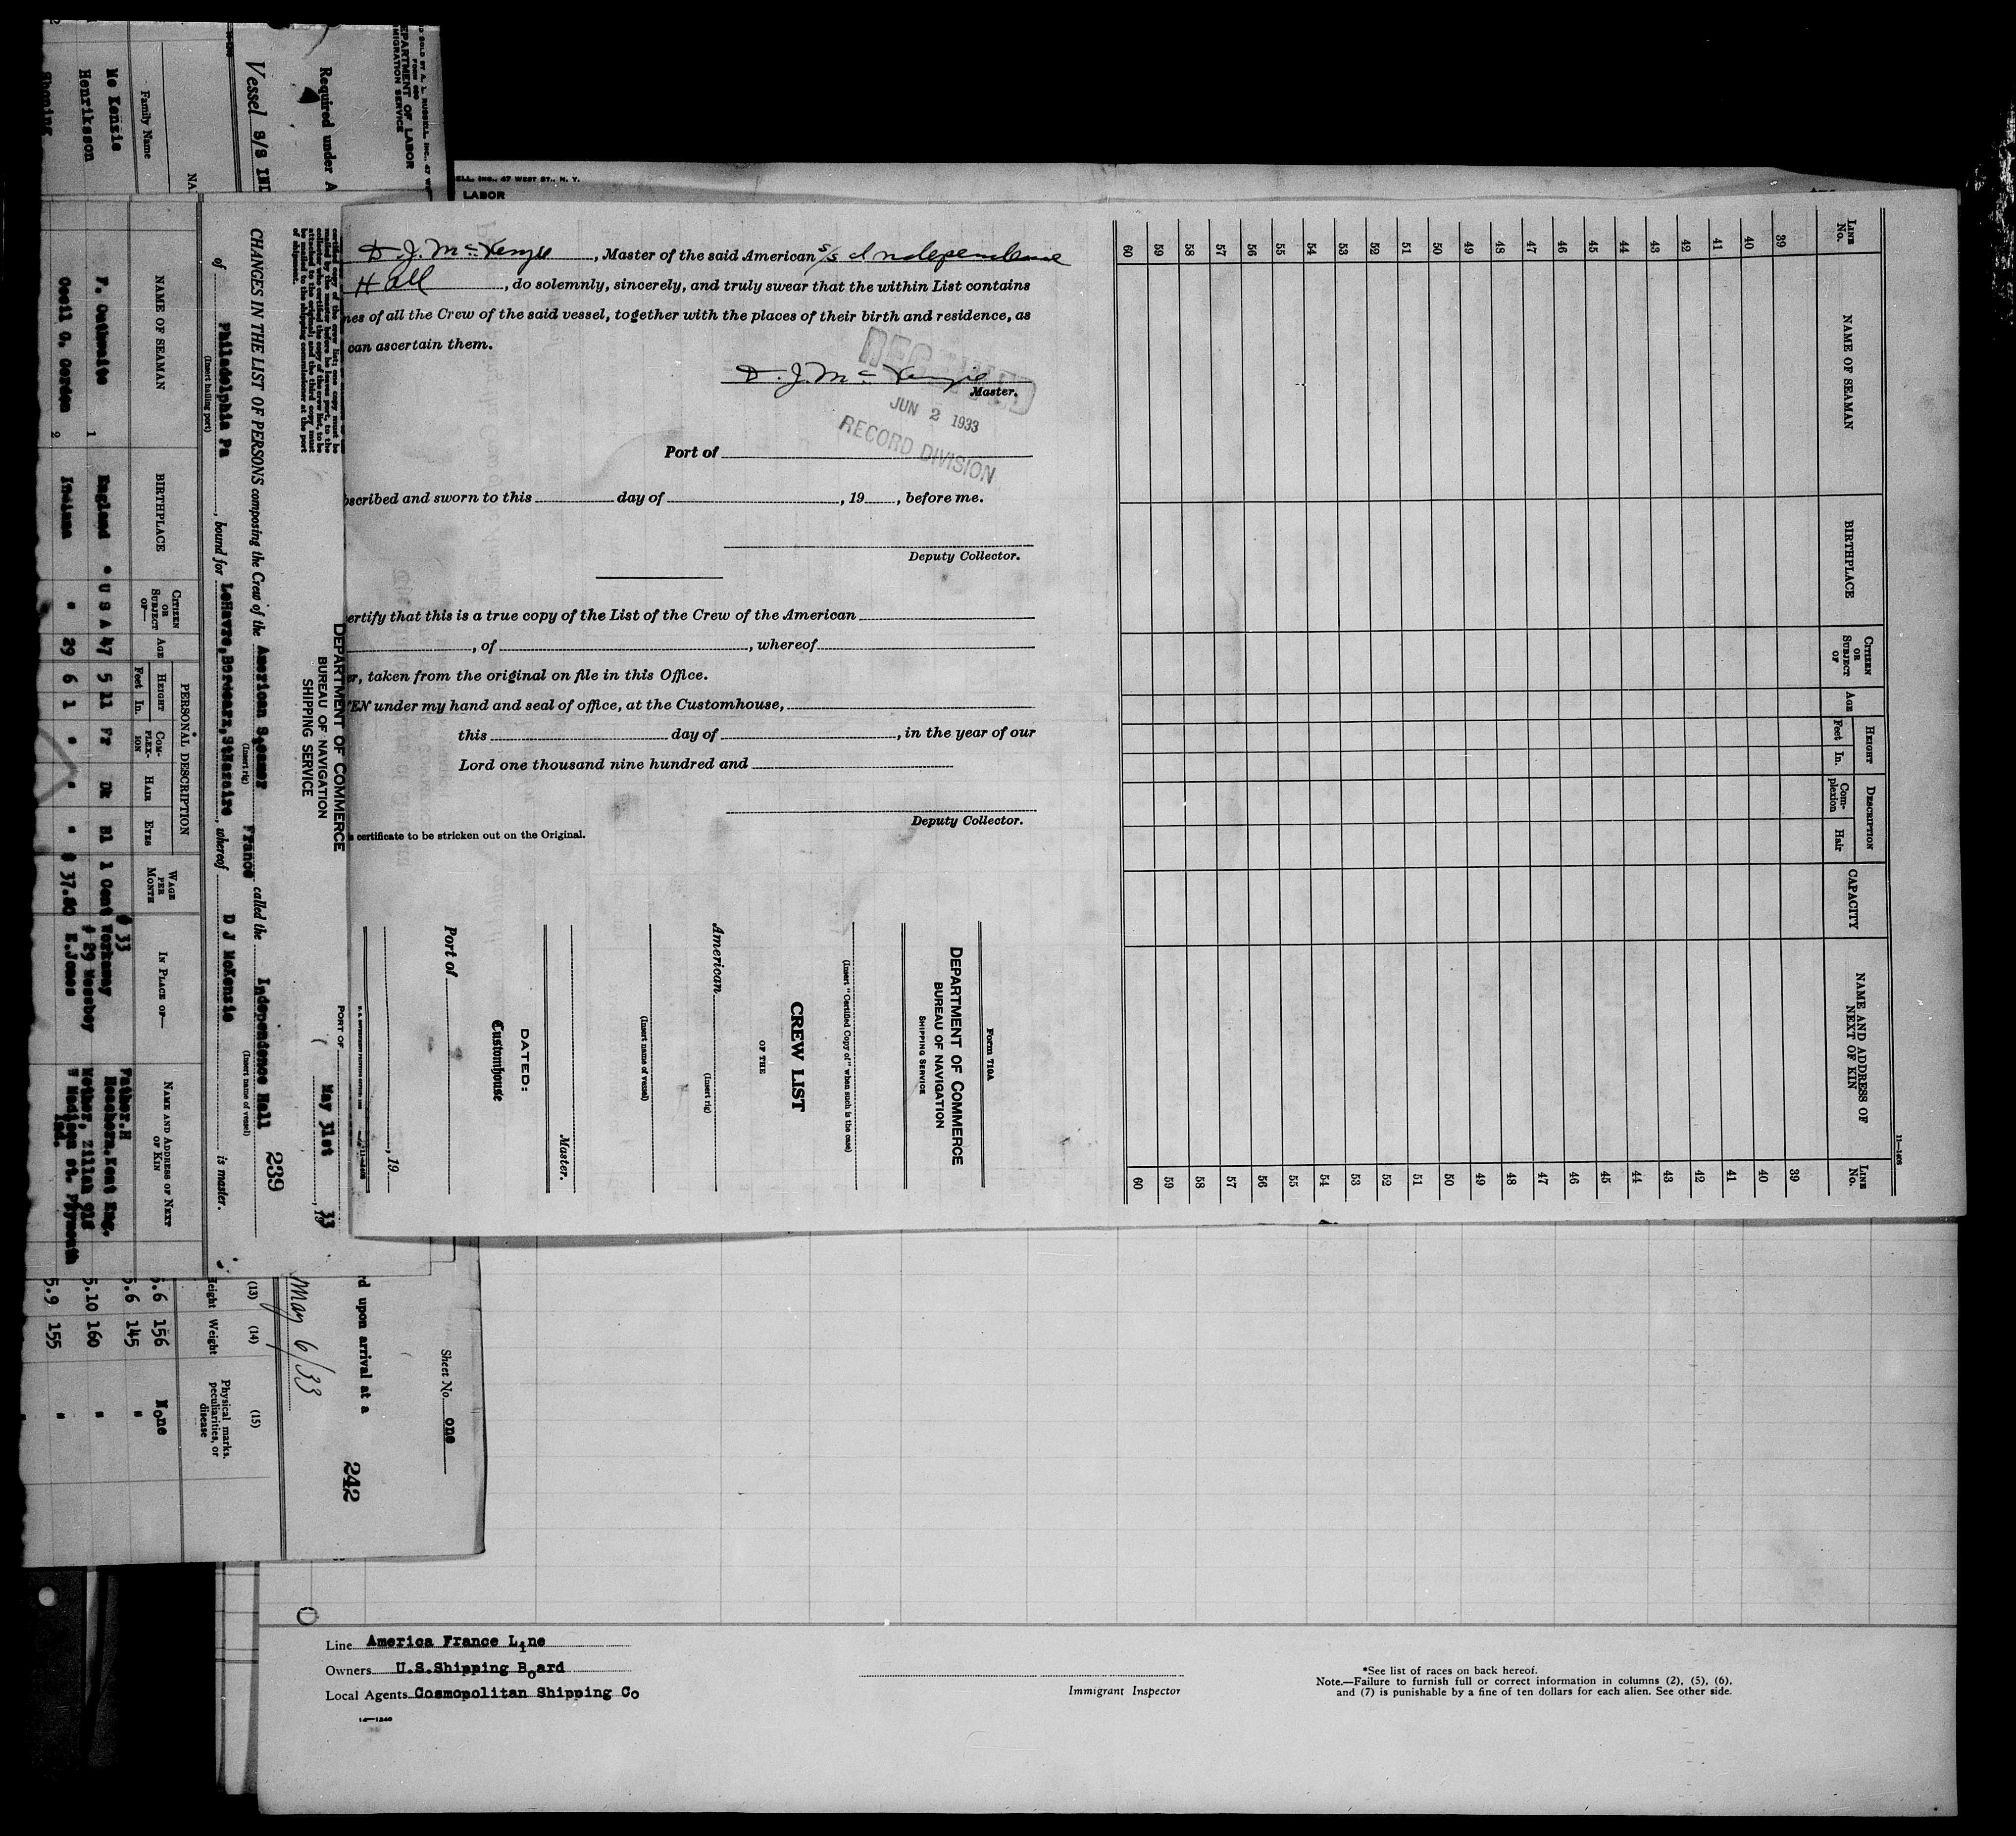 D SOLD BY A. L. RUSSELL, INC., 47 W
FORM 680
EPARTMENT OF LABOR
MIGRATION SERVICE
Required under A
Vessel S/S IN
NA
Family Name
Mc Kenzie
Henriksson
ELL, INC., 47 WEST ST., N. Y.
LABOR
certified copy of the crew list; one copy must be
of shipment.
DEPARTMENT OF COMMERCE
BUREAU OF NAVIGATION
SHIPPING SERVICE
PORT OF
May 31st, 1933
239
CHANGES IN THE LIST OF PERSONS composing the Crew of the American Steamer France called the Independence Hall
(Insert rig)
(Insert name of vessel)
of Philadelphia Pa, bound for LeHavre,Bordeaux,StNazaire, whereof D J McKenzie is master.
(Insert hailing port)
NAME OF SEAMAN
BIRTHPLACE
CITIZEN OR SUBJECT OF—
AGE
PERSONAL DESCRIPTION
HEIGHT
Feet In.
COMPLEXION
HAIR
EYES
WAGE PER MONTH
IN PLACE OF—
NAME AND ADDRESS OF NEXT OF KIN
# 33 Father.H
1 England " U S A 47 5 11 Fr Dk Bl 1 Cent Kent Eng.
# 29 Mother,
Cecil G. Gordon 2 Indiana " 29 6 1 " " " $ 37.50 E.Jones Madison St. Plymouth
Ind.
D. J. McKenzie, Master of the said American s/s Independence
Hall, do solemnly, sincerely, and truly swear that the within List contains
nes of all the Crew of the said vessel, together with the places of their birth and residence, as
can ascertain them.
D. J. McKenzie
Master.
RECEIVED
JUN 2 1933
RECORD DIVISION
Port of
bscribed and sworn to this day of , 19 , before me.
Deputy Collector.
ertify that this is a true copy of the List of the Crew of the American
, of , whereof
er, taken from the original on file in this Office.
EN under my hand and seal of office, at the Customhouse,
this day of , in the year of our
Lord one thousand nine hundred and
Deputy Collector.
s certificate to be stricken out on the Original.
Form 710A
DEPARTMENT OF COMMERCE
BUREAU OF NAVIGATION
SHIPPING SERVICE
(Insert "Certified Copy of" when such is the case)
CREW LIST
OF THE
American
(Insert rig)
(Insert name of vessel)
Master.
DATED:
Customhouse
Port of
, 19
11—1406
LINE No.
NAME OF SEAMAN
BIRTHPLACE
CITIZEN OR SUBJECT OF
AGE
HEIGHT
Feet
In.
DESCRIPTION
Complexion
Hair
CAPACITY
NAME AND ADDRESS OF NEXT OF KIN
LINE No.
39 39
40 40
41 41
42 42
43 43
44 44
45 45
46 46
47 47
48 48
49 49
50 50
51 51
52 52
53 53
54 54
55 55
56 56
57 57
58 58
59 59
60 60
Sheet No. one
rd upon arrival at a
242
May 6/33
(13) (14) (15)
Height Weight Physical marks, peculiarities, or disease
5.6 156 None
5.6 145 "
5.10 160 "
5.9 155 "
Line America France Line
Owners U.S.Shipping Board
Local Agents Cosmopolitan Shipping Co
14—1240
Immigrant Inspector
*See list of races on back hereof.
Note.—Failure to furnish full or correct information in columns (2), (5), (6),
and (7) is punishable by a fine of ten dollars for each alien. See other side.